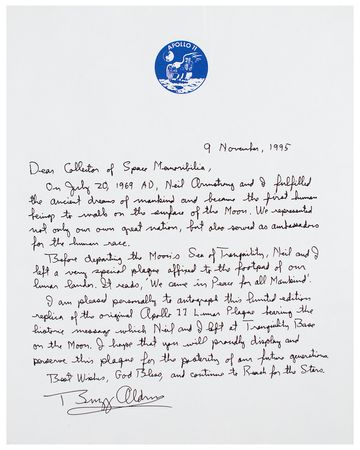 APOLLO 11
9 November, 1995
Dear Collector of Space Memoribilia,
On July 20, 1969 AD, Neil Armstrong and I fulfilled
the ancient dreams of mankind and became the first human
beings to walk on the surface of the Moon. We represented
not only our own great nation, but also served as ambassadors
for the human race.
Before departing the Moon's Sea of Tranquility, Neil and I
left a very special plaque affixed to the footpad of our
lunar lander. It reads, 'We came in Peace for all Mankind'.
I am pleased personally to autograph this limited edition
replica of the original Apollo 11 Lunar Plaque bearing the
historic message which Neil and I left at Tranquility Base
on the Moon. I hope that you will proudly display and
preserve this plaque for the posterity of our future generations.
Best Wishes, God Bless, and continue to Reach for the Stars.
Buzz Aldrin